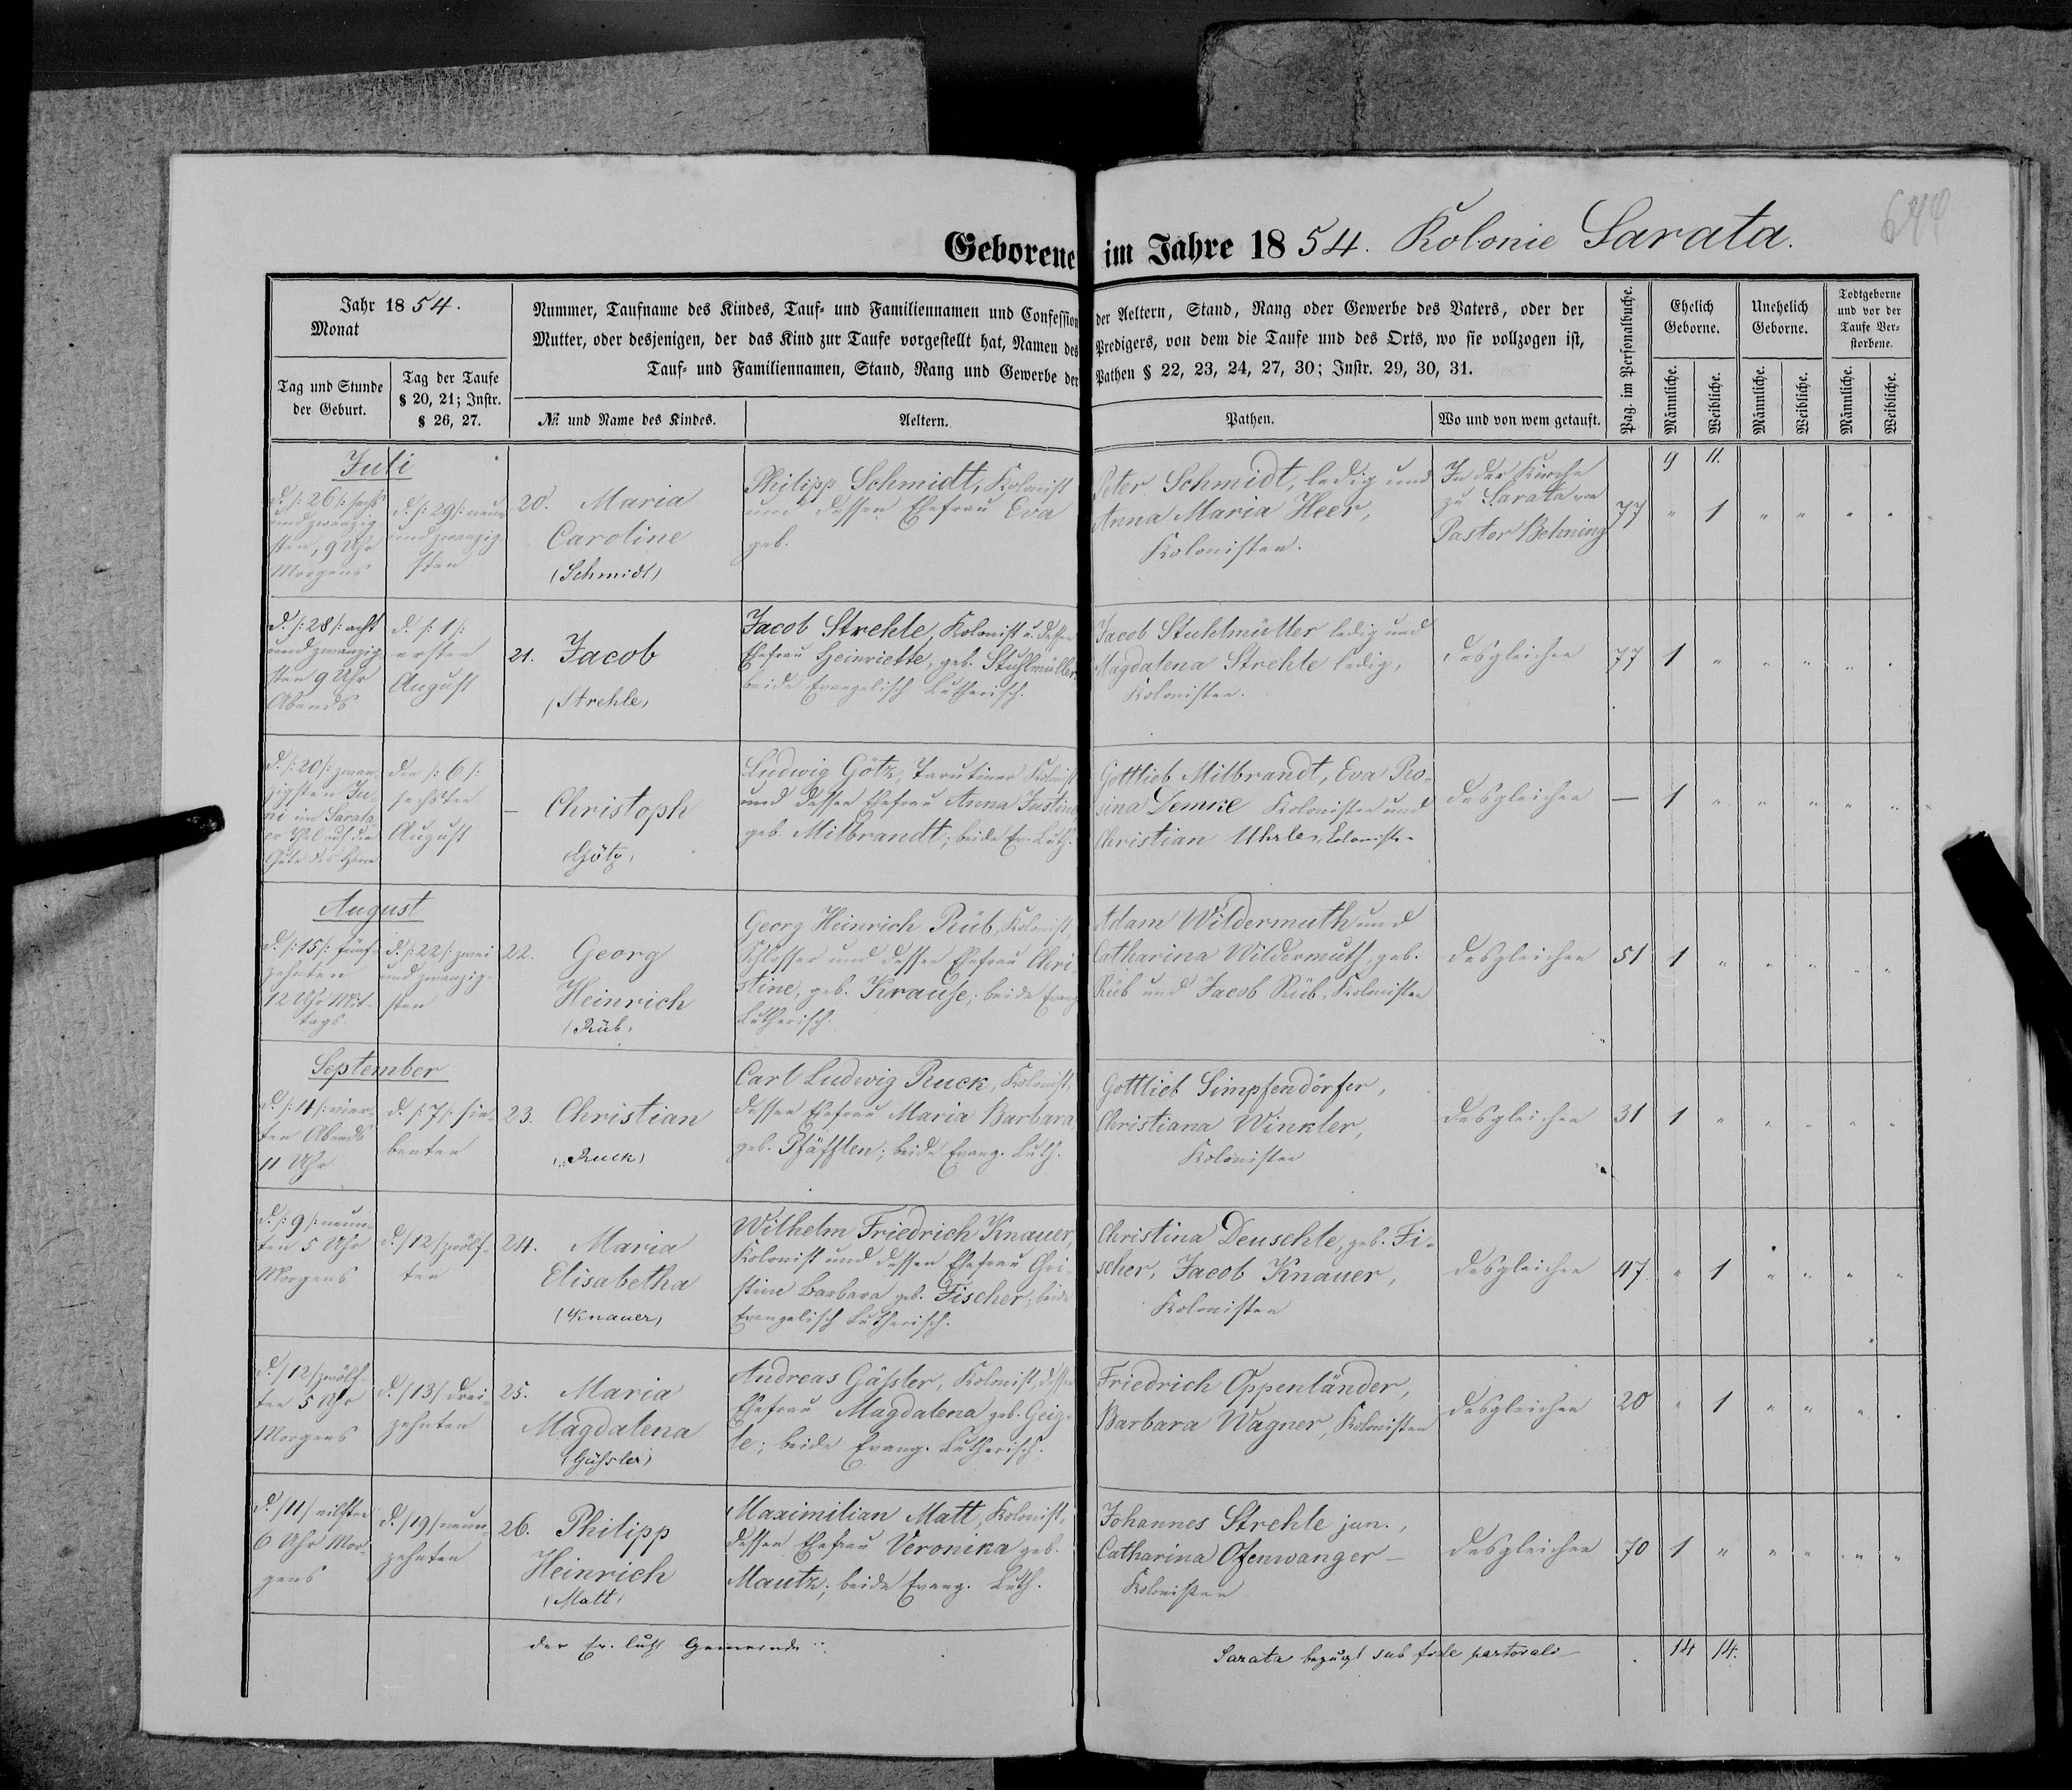 644
Geborene im Jahre 1854. Kolonie Sarata.
Jahr 1854.
Monat
Tag und Stunde
der Geburt.
Tag der Taufe
§ 20, 21; Instr.
§ 26, 27.
Nummer, Taufname des Kindes, Tauf- und Familiennamen und Confession der Aeltern, Stand, Rang oder Gewerbe des Vaters, oder der
Mutter, oder desjenigen, der das Kind zur Taufe vorgestellt hat, Namen des Predigers, von dem die Taufe und des Orts, wo sie vollzogen ist,
Tauf- und Familiennamen, Stand, Rang und Gewerbe der Pathen § 22, 23, 24, 27, 30; Instr. 29, 30, 31.
№ und Name des Kindes.
Aeltern.
Pathen.
Wo und von wem getauft.
Pag. im Personalbuche.
Ehelich
Geborne.
Unehelich
Geborne.
Todtgeborne
und vor der
Taufe Ver-
storbene.
Männliche.
Weibliche.
Männliche.
Weibliche.
Männliche.
Weibliche.
9 11.
Juli
d. /: 26 /: sechs
undzwanzig-
sten, 9 Uhr
Morgens
d. /: 29 /: neun
undzwanzig
sten
20. Maria
Caroline
(Schmidt)
Philipp Schmidt, Kolonist
und dessen Ehefrau Eva
geb.
Peter Schmidt, ledig und
Anna Maria Heer,
Kolonisten.
In der Kirche
zu Sarata von
Pastor Behning
77 " 1 " " " "
d. /: 28 /: acht
undzwanzig
sten 9 Uhr
Abends
d. /: 1 /:
ersten
August
21. Jacob
(Strehle)
Jacob Strehle, Kolonist u. dessen
Ehefrau Heinriette, geb. Stuhlmüller
beide Evangelisch Lutherisch.
Jacob Stuhlmüller ledig und
Magdalena Strehle ledig,
Kolonisten.
desgleichen
77 1 " " " " "
d. /: 20 /: zwan-
zigsten Ju-
ni im Sarata
er Thal auf dem
Gute des Herrn
den /: 6 /:
sechsten
August
— Christoph
(Götz)
Ludwig Götz, Tarutiner Kolonist
und dessen Ehefrau Anna Justine
geb. Milbrandt; beide Ev. Luth.
Gottlieb Milbrandt, Eva Ro-
sina Demke Kolonisten und
Christian Uhrle, Kolonist-
desgleichen
— 1 " " " " "
August
d. /: 15 /: fünf-
zehnten
12 Uhr Mit-
tags.
d. /: 22 /: zwei
und zwanzig-
sten
22. Georg
Heinrich
(Rüb)
Georg Heinrich Rüb, Kolonist,
Schlosser und dessen Ehefrau Chri
stine, geb. Krause; beide Evang
Lutherisch.
Adam Wildermuth und
Catharina Wildermuth, geb.
Rüb und Jacob Rüb, Kolonisten
desgleichen
51 1 " " " " "
September
d. /: 4 /: vier-
ten Abends
11 Uhr
d. /: 7 /: sie-
benten
23. Christian
(Ruck)
Carl Ludwig Ruck, Kolonist,
dessen Ehefrau Maria Barbara
geb. Pfäfflen; beide Evang. Luth.
Gottlieb Simpfendörfer,
Christiana Winkler,
Kolonisten
desgleichen
31 1 " " " " "
d. /: 9 /: neun-
ten 5 Uhr
Morgens
d. / 12 / zwölf-
ten
24. Maria
Elisabetha
(Knauer)
Wilhelm Friedrich Knauer,
Kolonist und dessen Ehefrau Chri-
stine Barbara geb. Fischer; beide
Evangelisch Lutherisch.
Christina Deuschle, geb. Fi-
scher, Jacob Knauer,
Kolonisten
desgleichen
47. " 1 " " " "
d. / 12 / zwölf-
ten 5 Uhr
Morgens
d. / 13 / drei-
zehnten
25. Maria
Magdalena
(Gäßler)
Andreas Gäßler, Kolonist, dessen
Ehefrau Magdalena geb. Geig-
le; beide Evang. Lutherisch.
Friedrich Oppenländer,
Barbara Wagner, Kolonisten
desgleichen
20 " 1 " " " "
d. / 11 / eilften
6 Uhr Mor-
gens
d. / 19 / neun
zehnten
26. Philipp
Heinrich
(Matt)
Maximilian Matt, Kolonist,
dessen Ehefrau Veronika geb.
Mautz; beide Evang. Luth.
Johannes Strehle jun.,
Catharina Ofenwanger —
Kolonisten
desgleichen
70 1 " " " " "
der Ev. luth Gemeinde
Sarata bezeugt sub fide pastorali
14 14.